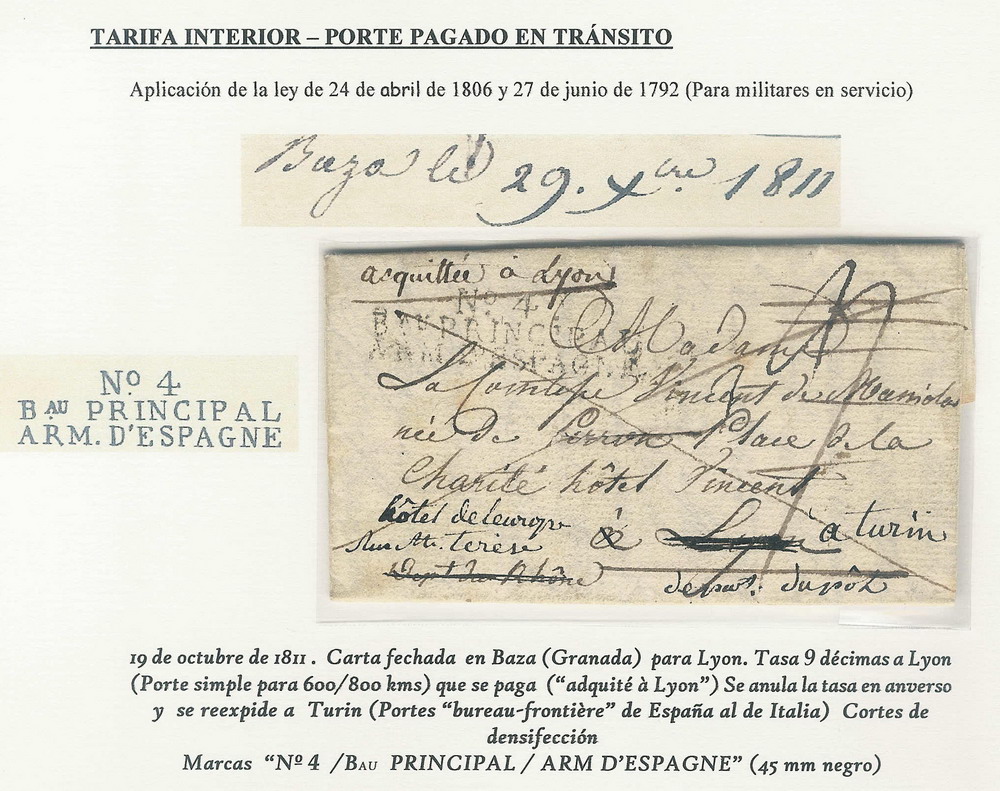 TARIFA INTERIOR – PORTE PAGADO EN TRÁNSITO
Aplicación de la ley de 24 de abril de 1806 y 27 de junio de 1792 (Para militares en servicio)
Baza le 29. Xbre 1811
acquittée à Lyon
Nº 4
BAU PRINCIPAL
ARM. D'ESPAGNE
Madame
La Comtesse Vincent de
née de Perron Place de la
Charité hôtel Vincent
hôtel de leurope
à Lyon a turin
Rue Ste. terese
Dept du Rhône
du pôt
Nº 4
BAU PRINCIPAL
ARM. D'ESPAGNE
19 de octubre de 1811 . Carta fechada en Baza (Granada) para Lyon. Tasa 9 décimas a Lyon
(Porte simple para 600/800 kms) que se paga (“adquité à Lyon”) Se anula la tasa en anverso
y se reexpide a Turin (Portes “bureau-frontière” de España al de Italia) Cortes de
densifección
Marcas “Nº 4 /BAU PRINCIPAL / ARM D'ESPAGNE” (45 mm negro)